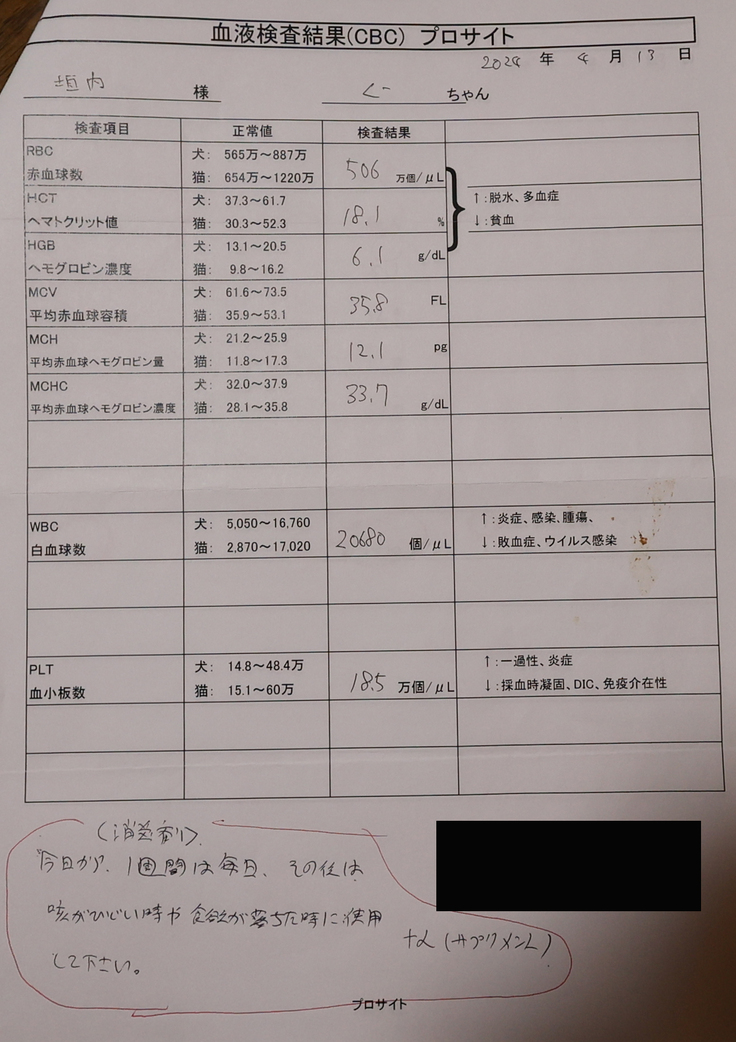 血液検査結果(CBC) プロサイト
2024 年 4 月 13 日
垣内 様 くー ちゃん
検査項目 正常値 検査結果
RBC 犬: 565万～887万
赤血球数 猫: 654万～1220万 506 万個/μL
HCT 犬: 37.3～61.7 ↑:脱水、多血症
ヘマトクリット値 猫: 30.3～52.3 18.1 % ↓:貧血
HGB 犬: 13.1～20.5
ヘモグロビン濃度 猫: 9.8～16.2 6.1 g/dL
MCV 犬: 61.6～73.5
平均赤血球容積 猫: 35.9～53.1 35.8 FL
MCH 犬: 21.2～25.9
平均赤血球ヘモグロビン量 猫: 11.8～17.3 12.1 pg
MCHC 犬: 32.0～37.9
平均赤血球ヘモグロビン濃度 猫: 28.1～35.8 33.7 g/dL
WBC 犬: 5,050～16,760 ↑:炎症、感染、腫瘍、
白血球数 猫: 2,870～17,020 20680 個/μL ↓:敗血症、ウイルス感染
PLT 犬: 14.8～48.4万 ↑:一過性、炎症
血小板数 猫: 15.1～60万 18.5 万個/μL ↓:採血時凝固、DIC、免疫介在性
(消炎剤)
今日から、1週間は毎日、その後は
咳がひどい時や食欲が落ちた時に使用
して下さい。
+α(サプリメント)
プロサイト